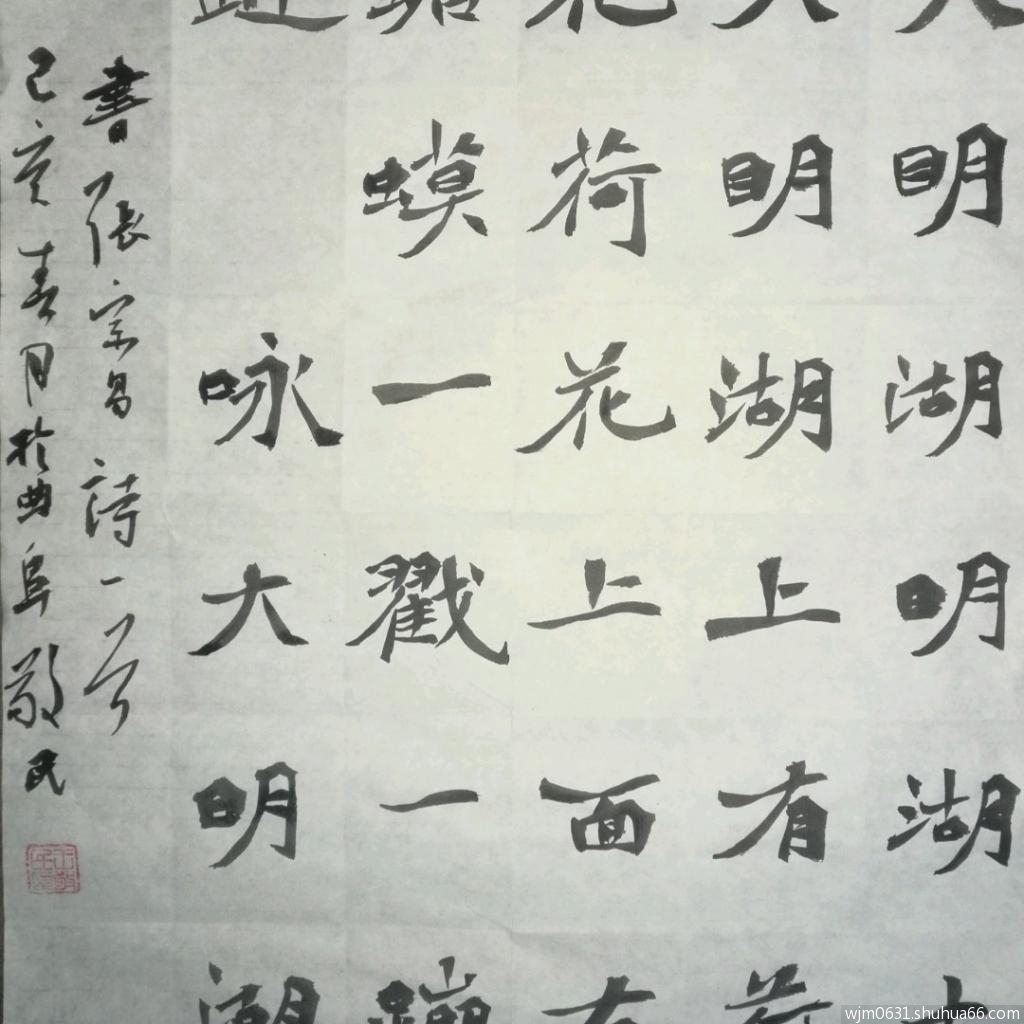 大明湖明湖大
大明湖上有荷
花荷花上面有
蛤蟆一戳一蹦
咏大明湖
書張宗昌詩一首
己亥春月於曲阜敬民
wjm0631.shuhua66.com